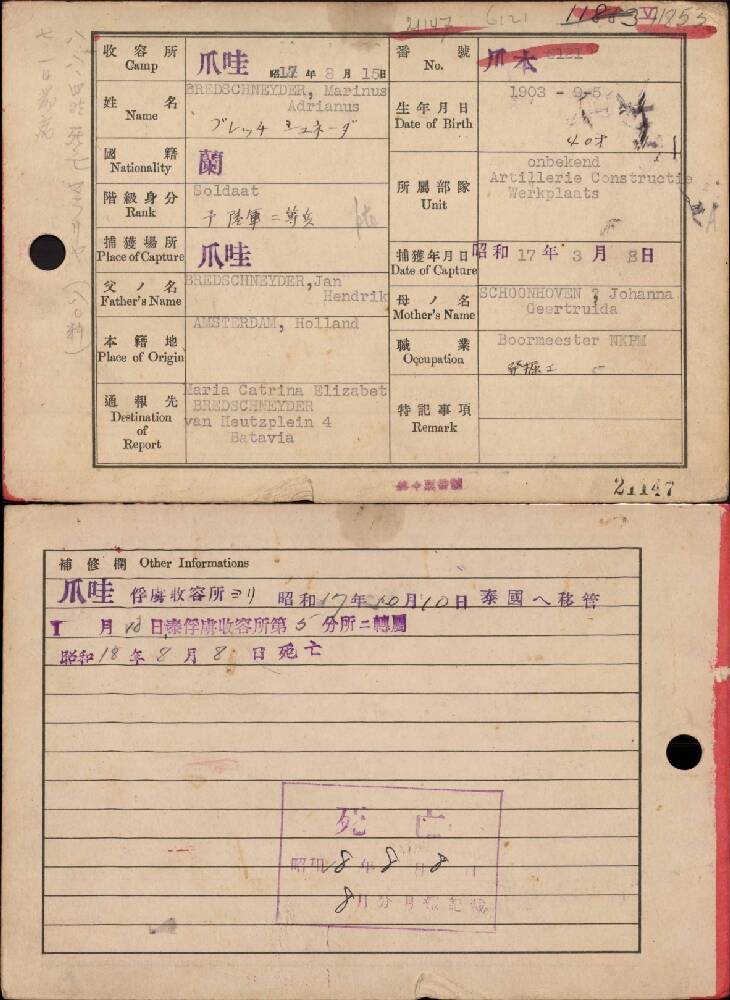 21147 6121 11853
收容所 Camp 爪哇 昭17年8月15日
番號 No. 爪本 6121
姓名 Name BREDSCHNEYDER, Marinus
Adrianus
ブレッチ シュネーダ
生年月日 Date of Birth 1903 - 9-5
40才
國籍 Nationality 蘭
階級身分 Rank Soldaat
陸軍二等兵
所屬部隊 Unit onbekend
Artillerie Constructie
Werkplaats
捕獲場所 Place of Capture 爪哇
捕獲年月日 Date of Capture 昭和17年3月8日
父ノ名 Father's Name BREDSCHNEYDER, Jan
Hendrik
母ノ名 Mother's Name SCHOONHOVEN ? Johanna
Geertruida
本籍地 Place of Origin AMSTERDAM, Holland
職業 Occupation Boormeester NKPM
通報先 Destination of Report Maria Catrina Elizabet
BREDSCHNEYDER
van Heutzplein 4
Batavia
特記事項 Remark
21147
補修欄 Other Informations
爪哇俘虜收容所ヨリ 昭和17年10月10日泰國へ移管
月 日泰俘虜收容所第5分所ニ轉屬
昭和18年8月8日死亡
死亡
昭和18年8月8日
8月分月報記載